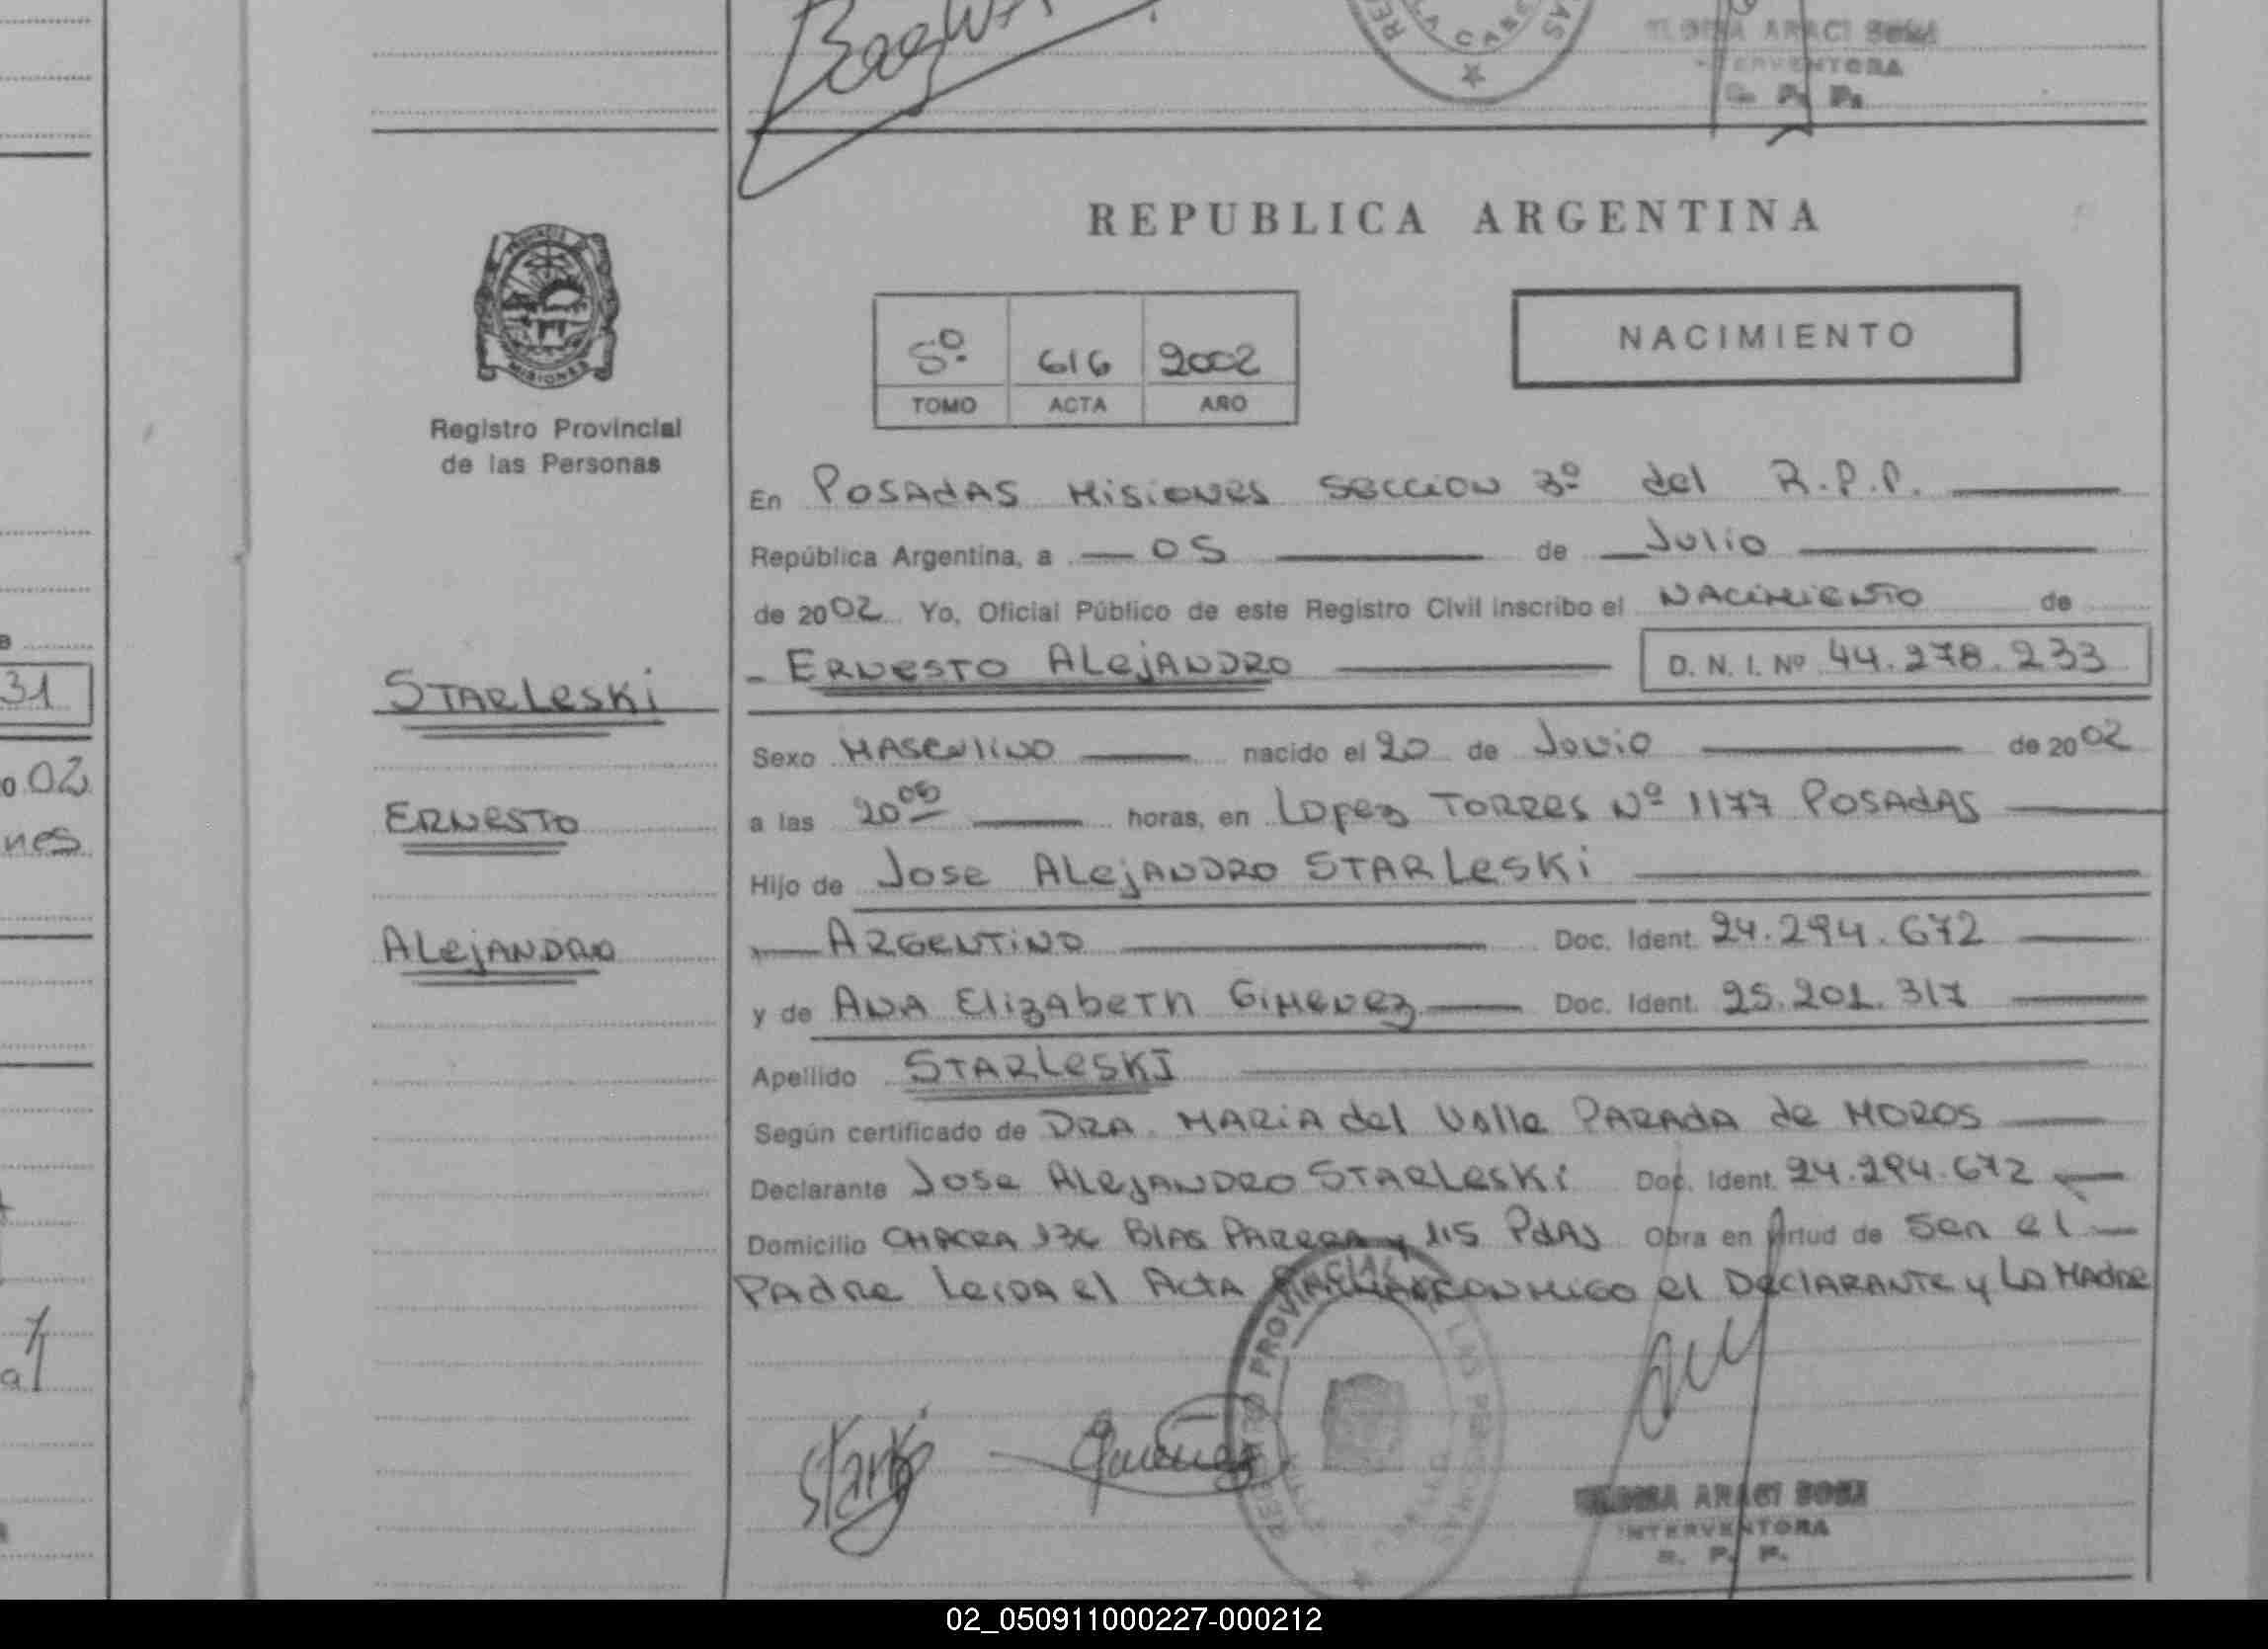 REPUBLICA ARGENTINA
PROVINCIA DE
MISIONES
Registro Provincial
de las Personas
NACIMIENTO
5º 616 2002
TOMO ACTA AÑO
En Posadas Misiones Seccion 3º del R.P.P.
República Argentina, a 05 de Julio
de 2002 Yo, Oficial Público de este Registro Civil inscribo el Nacimiento de
Ernesto Alejandro D. N. I. Nº 44.278.233
Starleski
Ernesto
Alejandro
Sexo Masculino nacido el 20 de Junio de 2002
a las 20 00 horas, en Lopez Torres Nº 1177 Posadas
Hijo de Jose Alejandro Starleski
Argentino Doc. Ident. 24.294.672
y de Ana Elizabeth Gimenez Doc. Ident. 25.201.317
Apellido Starleski
Según certificado de Dra. Maria del Valle Parada de Moros
Declarante Jose Alejandro Starleski Doc. Ident. 24.294.672
Domicilio Chacra 136 Blas Parera y 115 Pdas Obra en virtud de Ser el
Padre Leida el Acta conmigo el Declarante y La Madre
REGISTRO PROVINCIAL DE LAS PERSONAS
ARACI
INTERVENTORA
R. P. P.
31
02
nes
ARACI
INTERVENTORA
R. P. P.
02_050911000227-000212